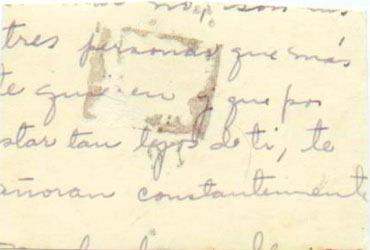 son las
tres personas que más
te quieren y que por
star tan lejos de ti, te
añoran constantemente